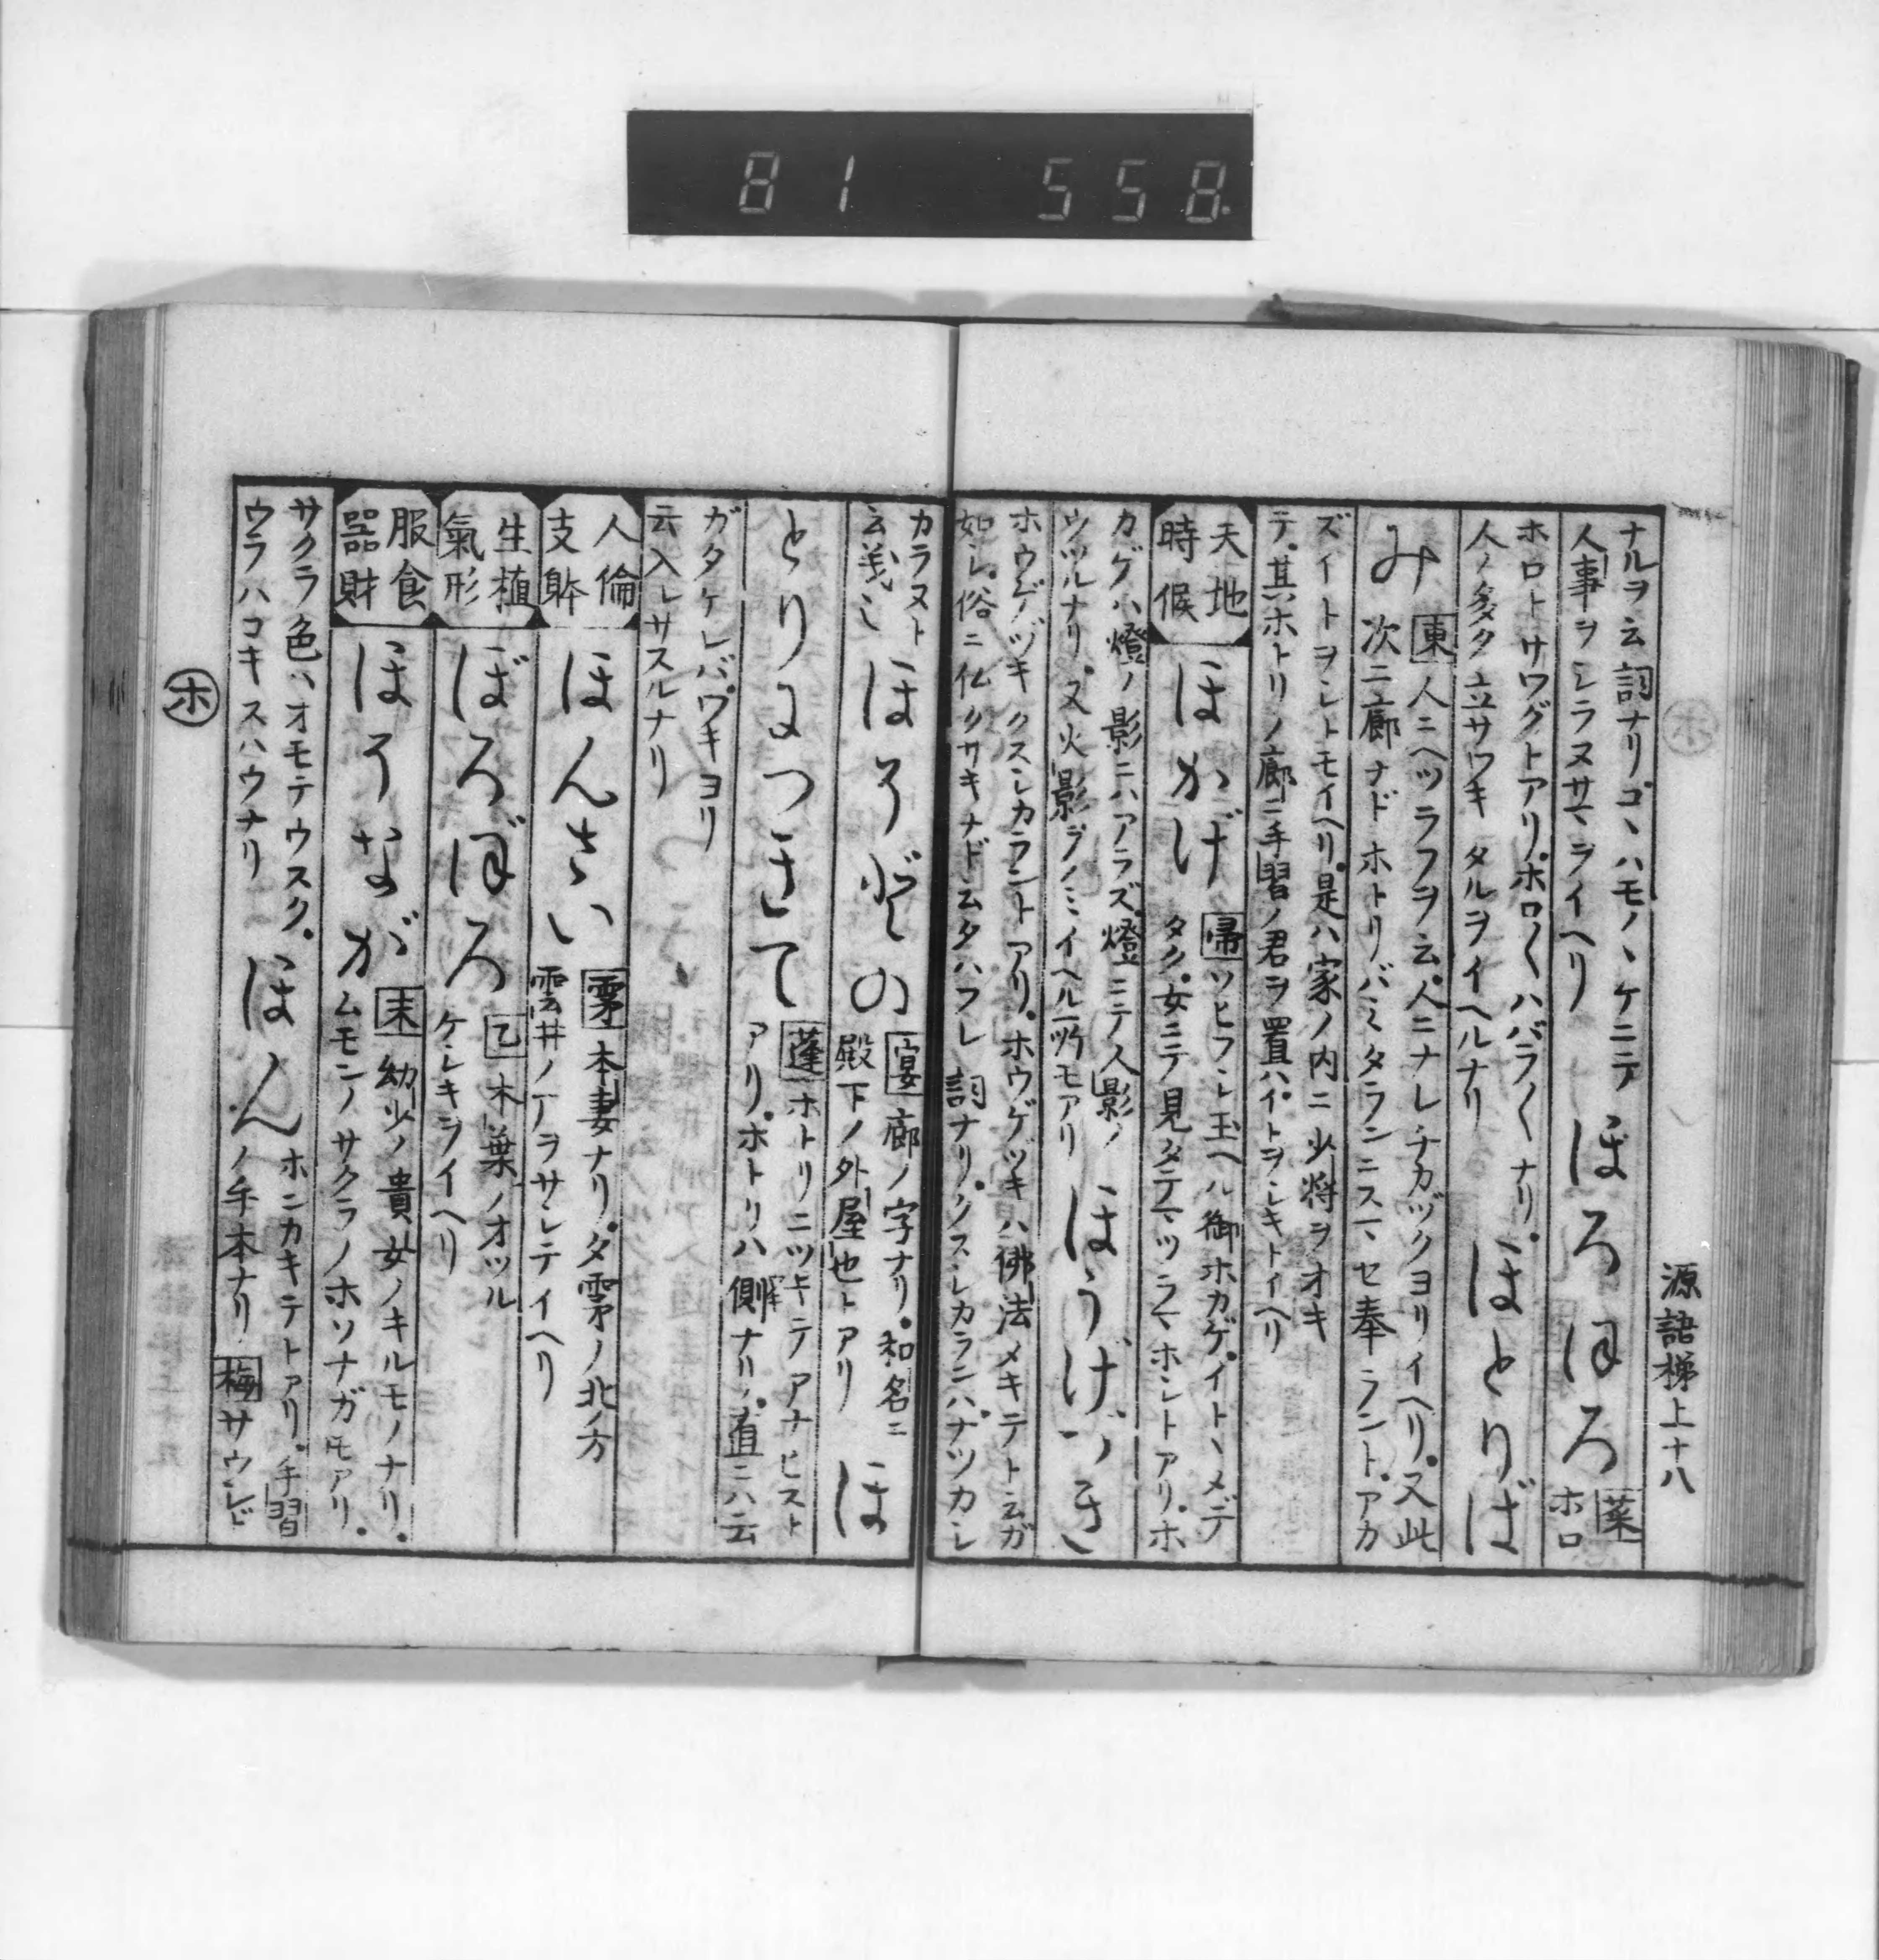 81 558
源語梯上十八
ナルヲ云詞ナリコヽハモノヽケニテ
人事ヲシラヌサマヲイヘリ
ほろほろ
菜
ホロ
ホロトサワグトアリ。ホロ〱ハバラ〱ナリ。
人ノ多ク立サワキタルヲイヘルナリ
ほとりば
み
東人ニヘツラフヲ云。人ニナレチカヅクヨリイヘリ。又此
次ニ廊ナドホトリバミタランニスマセ奉ラント。アカ
ズイトヲシトモイヘリ。是ハ家ノ内ニ少将ヲオキ
テ。其ホトリノ廊ニ手習ノ君ヲ置ハイトヲシキトイヘリ
天地
時候
ほかげ
帚ツヒフシ玉ヘル御ホカゲ。イトヽメデ
タク。女ニテ見タテマツラマホシトアリ。ホ
カゲハ燈ノ影ニハアラズ。燈ニテ人影ノ
ウツルナリ。又火影ヲノミイヘル所モアリ
ほうげづき
ホウゲヅキクスシカラントアリ。ホウゲヅキハ佛法メキテト云ガ
如シ。俗ニ仏クサキナド云タハフレ詞ナリ。クスシカランハ。ナツカシ
カラヌト
云義也
ほそどの
宴廊ノ字ナリ。和名ニ
殿下ノ外屋也トアリ
ほ
とりにつきて
蓬ホトリニツキテアナヒスト
アリ。ホトリハ側ナリ。直ニハ云
ガタケレバ。ワキヨリ
云入レサスルナリ
人倫
支躰
ほんさい
霧本妻ナリ。夕霧ノ北ノ方
雲井ノ ヲサシテイヘリ
生植
氣形
ぼろぼろ
乙木葉ノオツル
ケシキヲイヘリ
服食
器財
ほそなが
末幼少ノ貴女ノキルモノナリ。
ムモンノサクラノホソナガモアリ。
サクラ色ハオモテウスク。
ウラハコキスハウナリ
ほん
ホニカキテトアリ。手習
ノ手本ナリ
梅サウシ
ホ